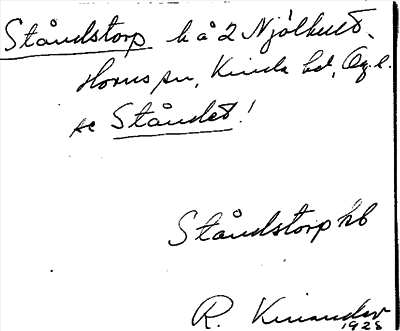 Ståndstorp h å 2 Njölhult.
Horns sn, Kinda hd, Ög. l.
se Ståndet!
Ståndstorp hb
R. Kinander
1928